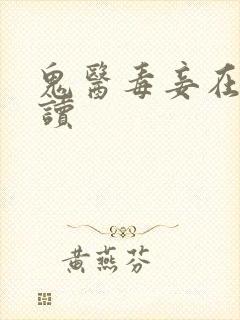 鬼醫毒妾在
讀
黃燕芬